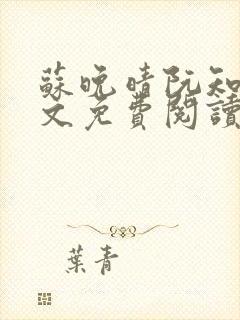 蘇晚晴阮知
文免費閱讀
葉青